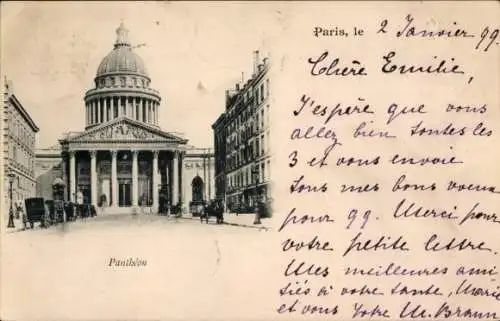 Paris, le 2 Janvier 99
Chère Emilie,
J'espère que vous
allez bien toutes les
3 et vous envoie
tous mes bons voeux
pour 99. Merci pour
votre petite lettre.
Mes meilleures ami-
tiés à votre tante, Marie
et vous Votre M. Braun
Panthéon